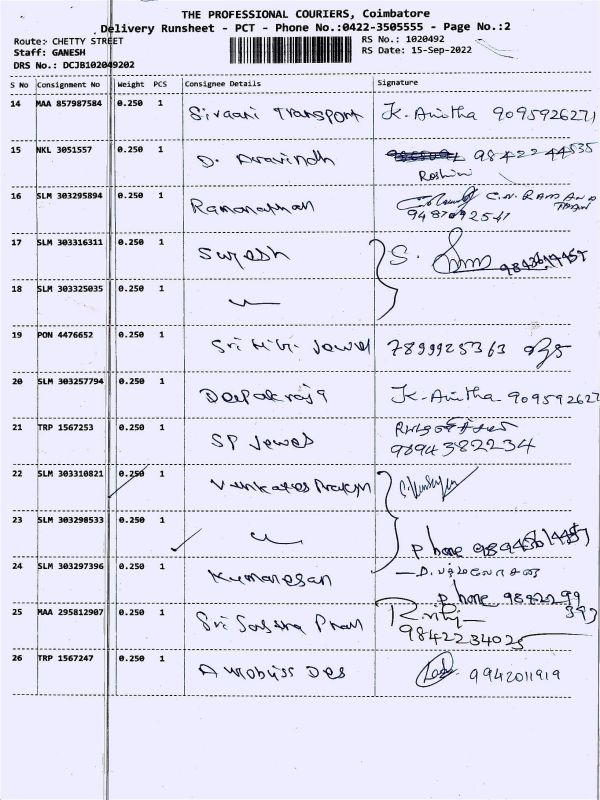 THE PROFESSIONAL COURIERS, Coimbatore
Delivery Runsheet - PCT - Phone No.:0422-3505555 - Page No.:2
Route:- CHETTY STREET
RS No.: 1020492
Staff: GANESH
RS Date: 15-Sep-2022
DRS No.: DCJB102049202
S No Consignment No Weight PCS Consignee Details Signature
14 MAA 857987584 0.250 1 Sivaani Transport K. Anitha 9095926271
15 NKL 3051557 0.250 1 D. Aravindh 9842244535
Roshini
16 SLM 303295894 0.250 1 Ramanathan C.N. RAMANA
THAN
9487092541
17 SLM 303316311 0.250 1 Suresh S.
18 SLM 303325035 0.250 1
19 PON 4476652 0.250 1 Sri Jewel 7899925363
20 SLM 303257794 0.250 1 Deepak raja K. Anitha 909592627
21 TRP 1567253 0.250 1 SP Jewels
9894382234
22 SLM 303310821 0.250 1 Venkates Prakash
23 SLM 303298533 0.250 1 phone
24 SLM 303297396 0.250 1 Kumaresan
phone 9842299
393
25 MAA 295812907 0.250 1 Sri
9842234025
26 TRP 1567247 0.250 1 9942011919